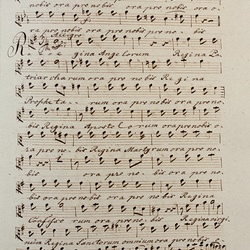 nobis ora pro nobis ora pro nobis ora
ra pro nobis ora pro nobis pro no bis
Allegro
Regina Angelorum Regina Pa
triarcharum ora pro nobis Regina
Propheta rum ora pro nobis ora pro no
bis Regina Apostolorum ora pro nobis o
ra pro no bis Regina Martyrum ora pro no
bis ora pro no bis ora pro no bis Regina
Confesso rum ora pro nobis Regina virgi
num Regina Sanctorum omnium ora pro nobis